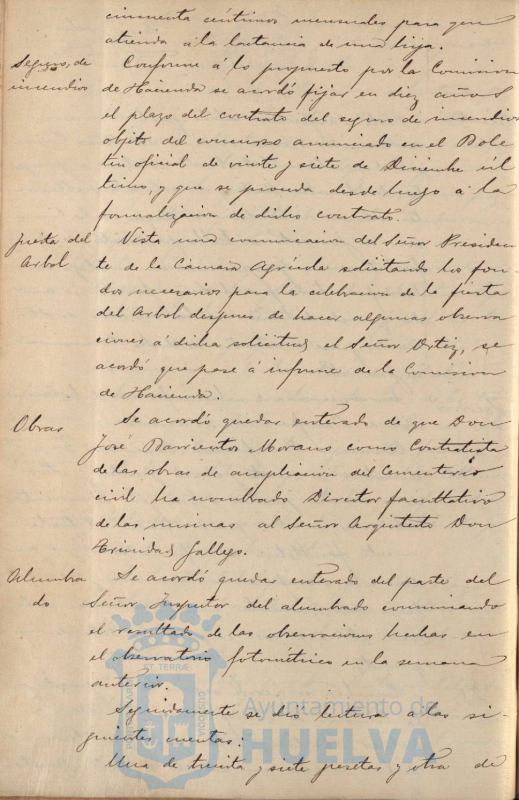 cincuenta céntimos mensuales para que
atienda a la lactancia de una hija.
Seguros de
incendios
Conforme á lo propuesto por la Comision
de Hacienda se acordó fijar en diez años
el plazo del contrato del seguro de incendios
objeto del concurso anunciado en el Bole
tin oficial de veinte y siete de Diciembre úl
timo, y que se proceda desde luego á la
formalizacion de dicho contrato.
Fiesta del
Arbol
Vista una comunicacion del Señor Presiden
te de la Cámara Agrícola solicitando los fon
dos necesarios para la celebracion de la fiesta
del Arbol despues de hacer algunas observa
ciones á dicha solicitud el Señor Ortiz, se
acordó que pase á informe de la Comision
de Hacienda.
Obras
Se acordó quedar enterado de que Don
José Barrientos Morano como Contratista
de las obras de ampliacion del Cementerio
civil ha nombrado Director facultativo
de las mismas al Señor Arquitecto Don
Trinidad Gallego.
Alumbra
do
Se acordó quedar enterado del parte del
Señor Inspector del alumbrado comunicando
el resultado de las observaciones hechas en
el observatorio fotométrico en la semana
anterior.
Seguidamente se dió lectura a las si
guientes cuentas:
Una de treinta y siete pesetas y otra de
Ayuntamiento de
HUELVA